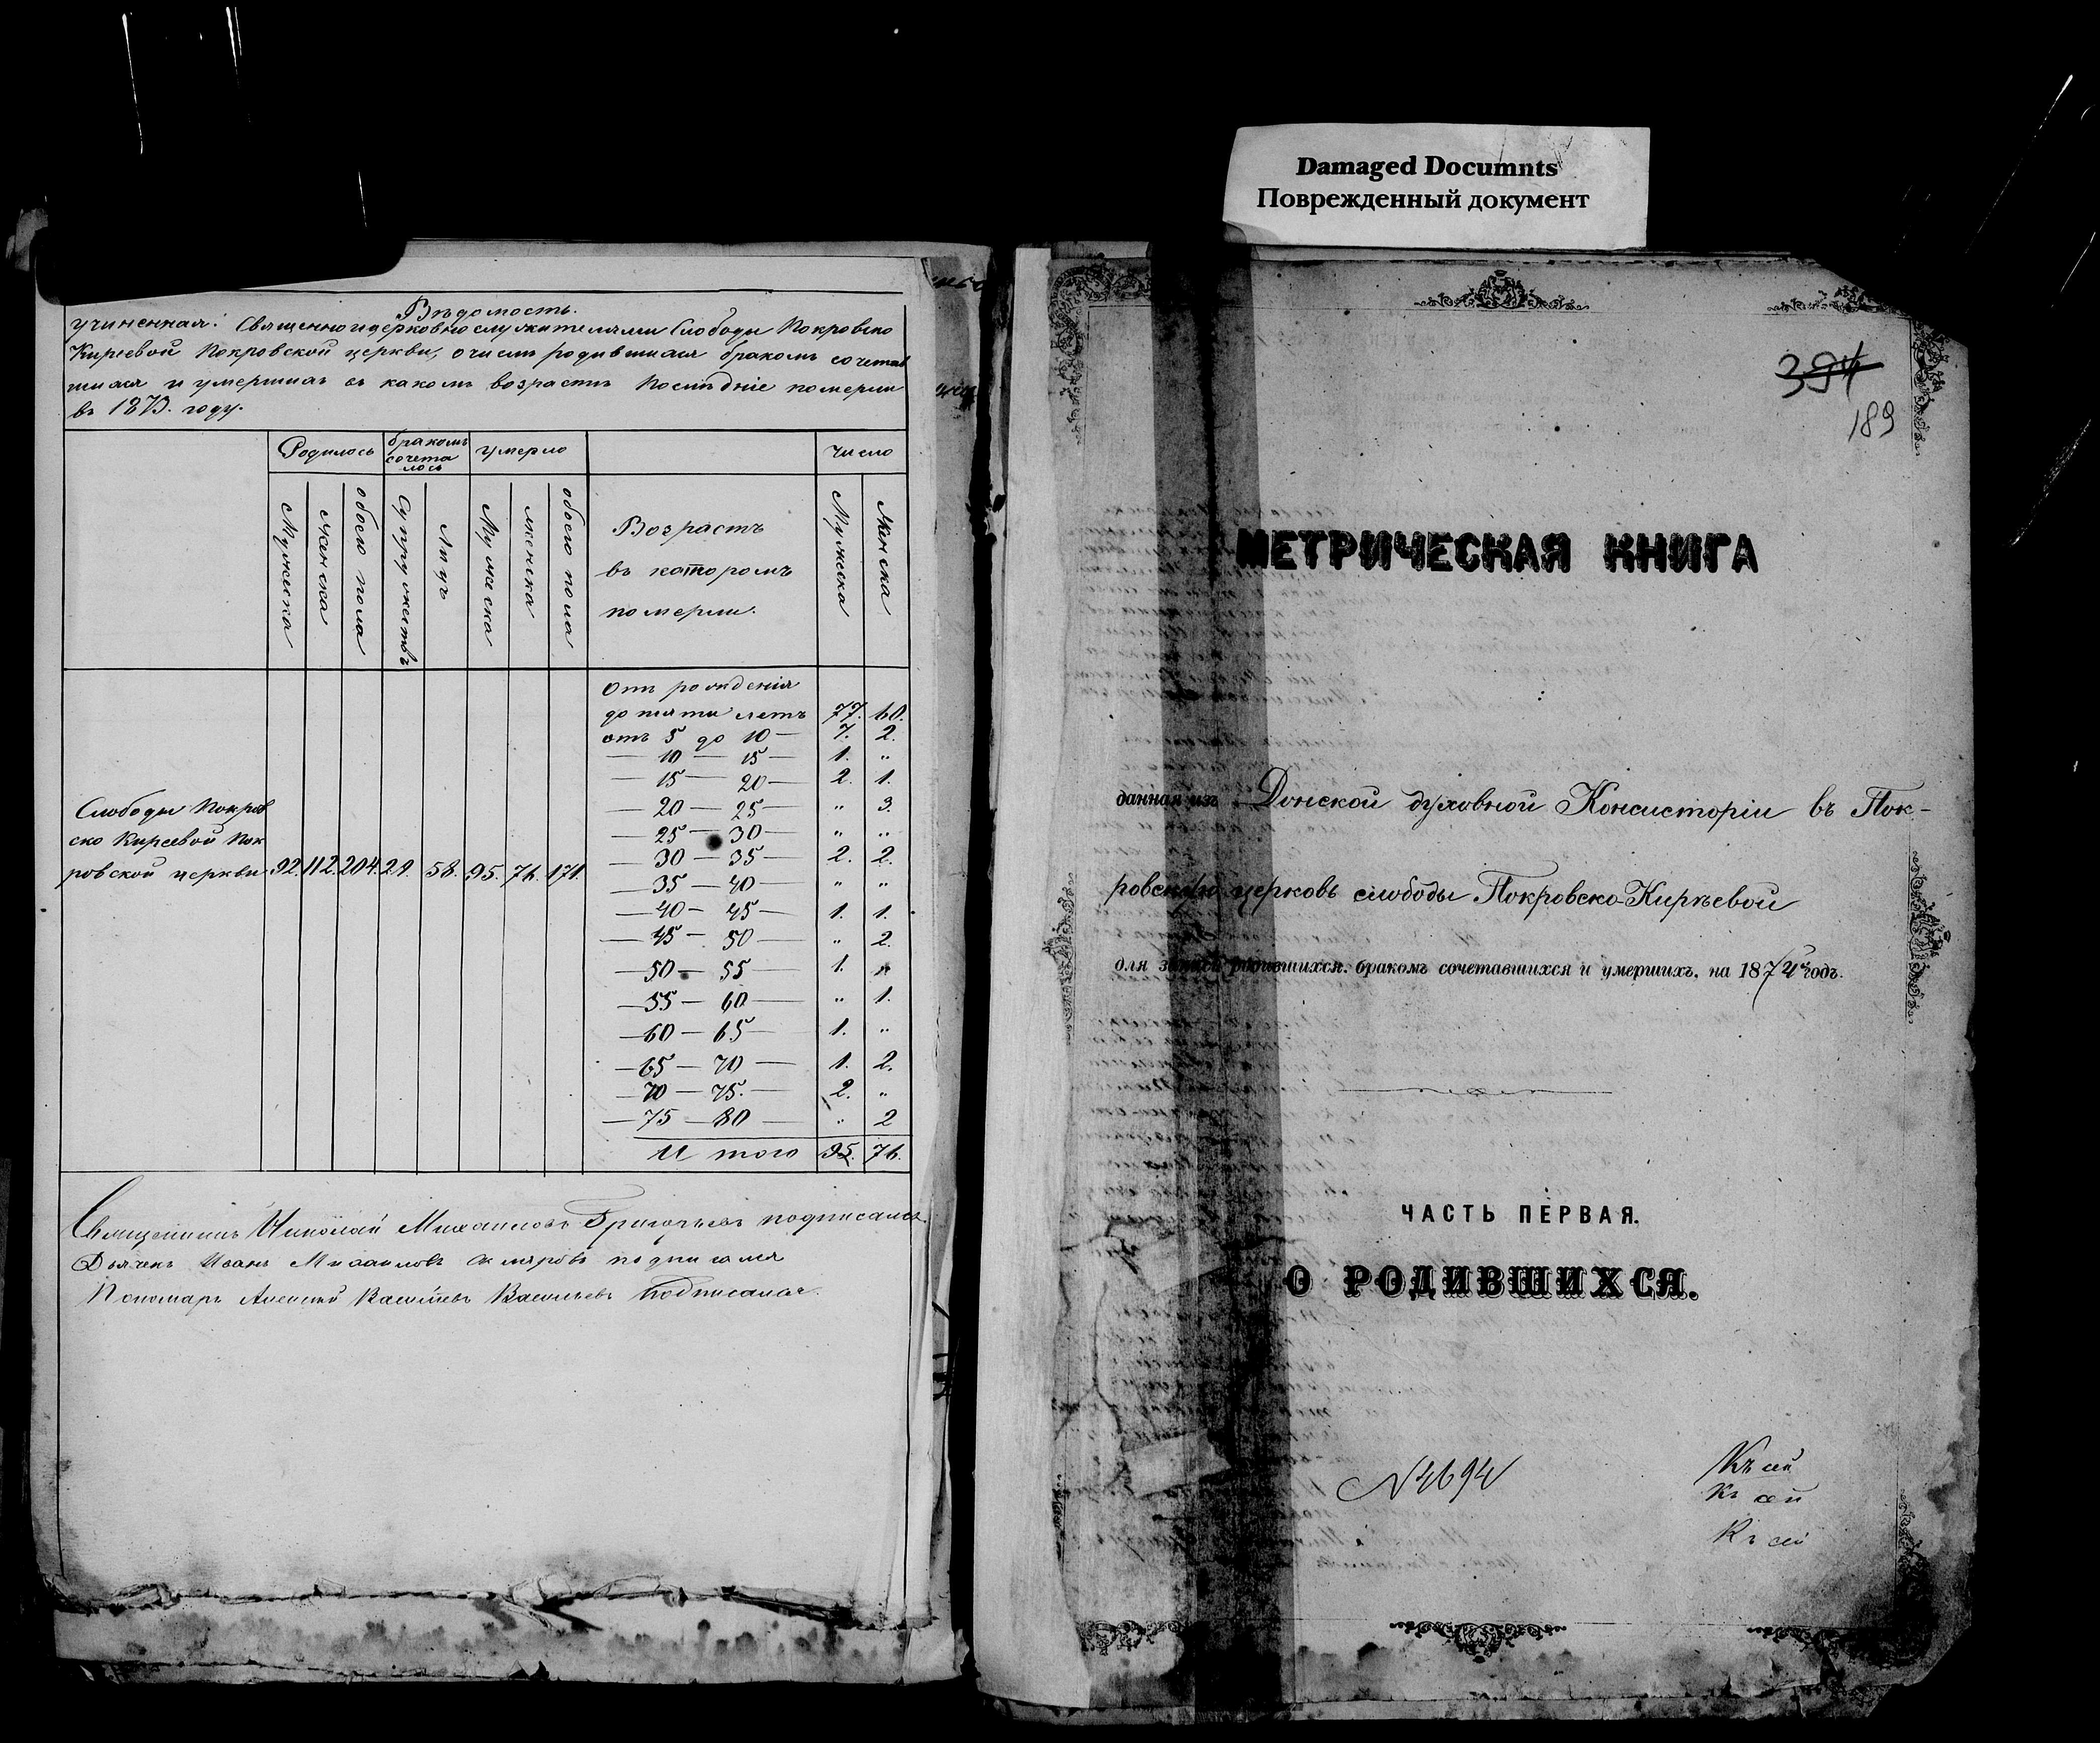 Damaged Documnts
Поврежденный документ
Вѣдомость.
учиненная: Священноицерковно служителями Слободы Покровско
Киреевой Покровской церкви, о числѣ родившихся бракомъ сочетав
шихся и умершихъ въ какомъ возрастѣ послѣдніе померли
въ 1873. году.
Родилось
бракомъ сочета лось
умерло
Число
Мужеска
женска
обоего пола
Супружествъ
Лицъ
Мужеска
женска
обоего пола
Возрастъ
въ которомъ
померли.
Мужеска
Женска
Отъ рожденія
до пяти летъ 77. 60.
отъ 5 до 10 — 7. 2.
— 10 — 15 — 1. „
— 15 — 20 — 2. 1.
— 20 — 25 — „ 3.
— 25 — 30 — „ „
— 30 — 35 — 2. 2.
— 35 — 40 — „ „
— 40 — 45 — 1. 1.
— 45 — 50 — „ 2.
— 50 — 55 — 1. „
— 55 — 60 — „ 1.
— 60 — 65 — 1. „
— 65 — 70 — 1. 2.
— 70 — 75. — 2. „
— 75 — 80 — „ 2
Итого 95. 76.
Слободы Покров
ско Киреевой Пок
ровской церкви 92. 112. 204. 29. 58. 95. 76. 171.
Священникъ Николай Михаиловъ Григорьевъ подписался
Дьячекъ Иванъ Михаиловъ подписался
Пономарь Алексѣй Васильевъ Васильевъ Подписался.
394
189
МЕТРИЧЕСКАЯ КНИГА
данная изъ Донской духовной Консисторіи въ Пок-
ровскую церковь слободы Покровско-Кирѣевой
для записи родившихся, бракомъ сочетавшихся и умершихъ, на 1874 годъ.
ЧАСТЬ ПЕРВАЯ.
О РОДИВШИХСЯ.
N4694
Къ сей
Къ сей
Къ сей